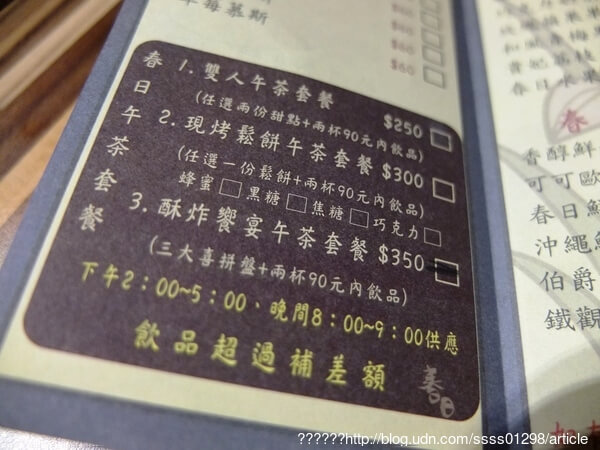 莓慕斯
$60
$60
$60
春日午茶套餐
1. 雙人午茶套餐 $250
(任選兩份甜點+兩杯90元內飲品)
2. 現烤鬆餅午茶套餐 $300
(任選一份鬆餅+兩杯90元內飲品)
蜂蜜 黑糖 焦糖 巧克力
3. 酥炸饗宴午茶套餐 $350
(三大喜拼盤+兩杯90元內飲品)
下午2：00~5：00、晚間8：00~9：00供應
飲品超過補差額
春日
和風青梅
貴妃荔枝
春日水果
春
香醇鮮
可可歐
春日鮮
沖繩
伯爵
鐵觀
??????http://blog.udn.com/ssss01298/article